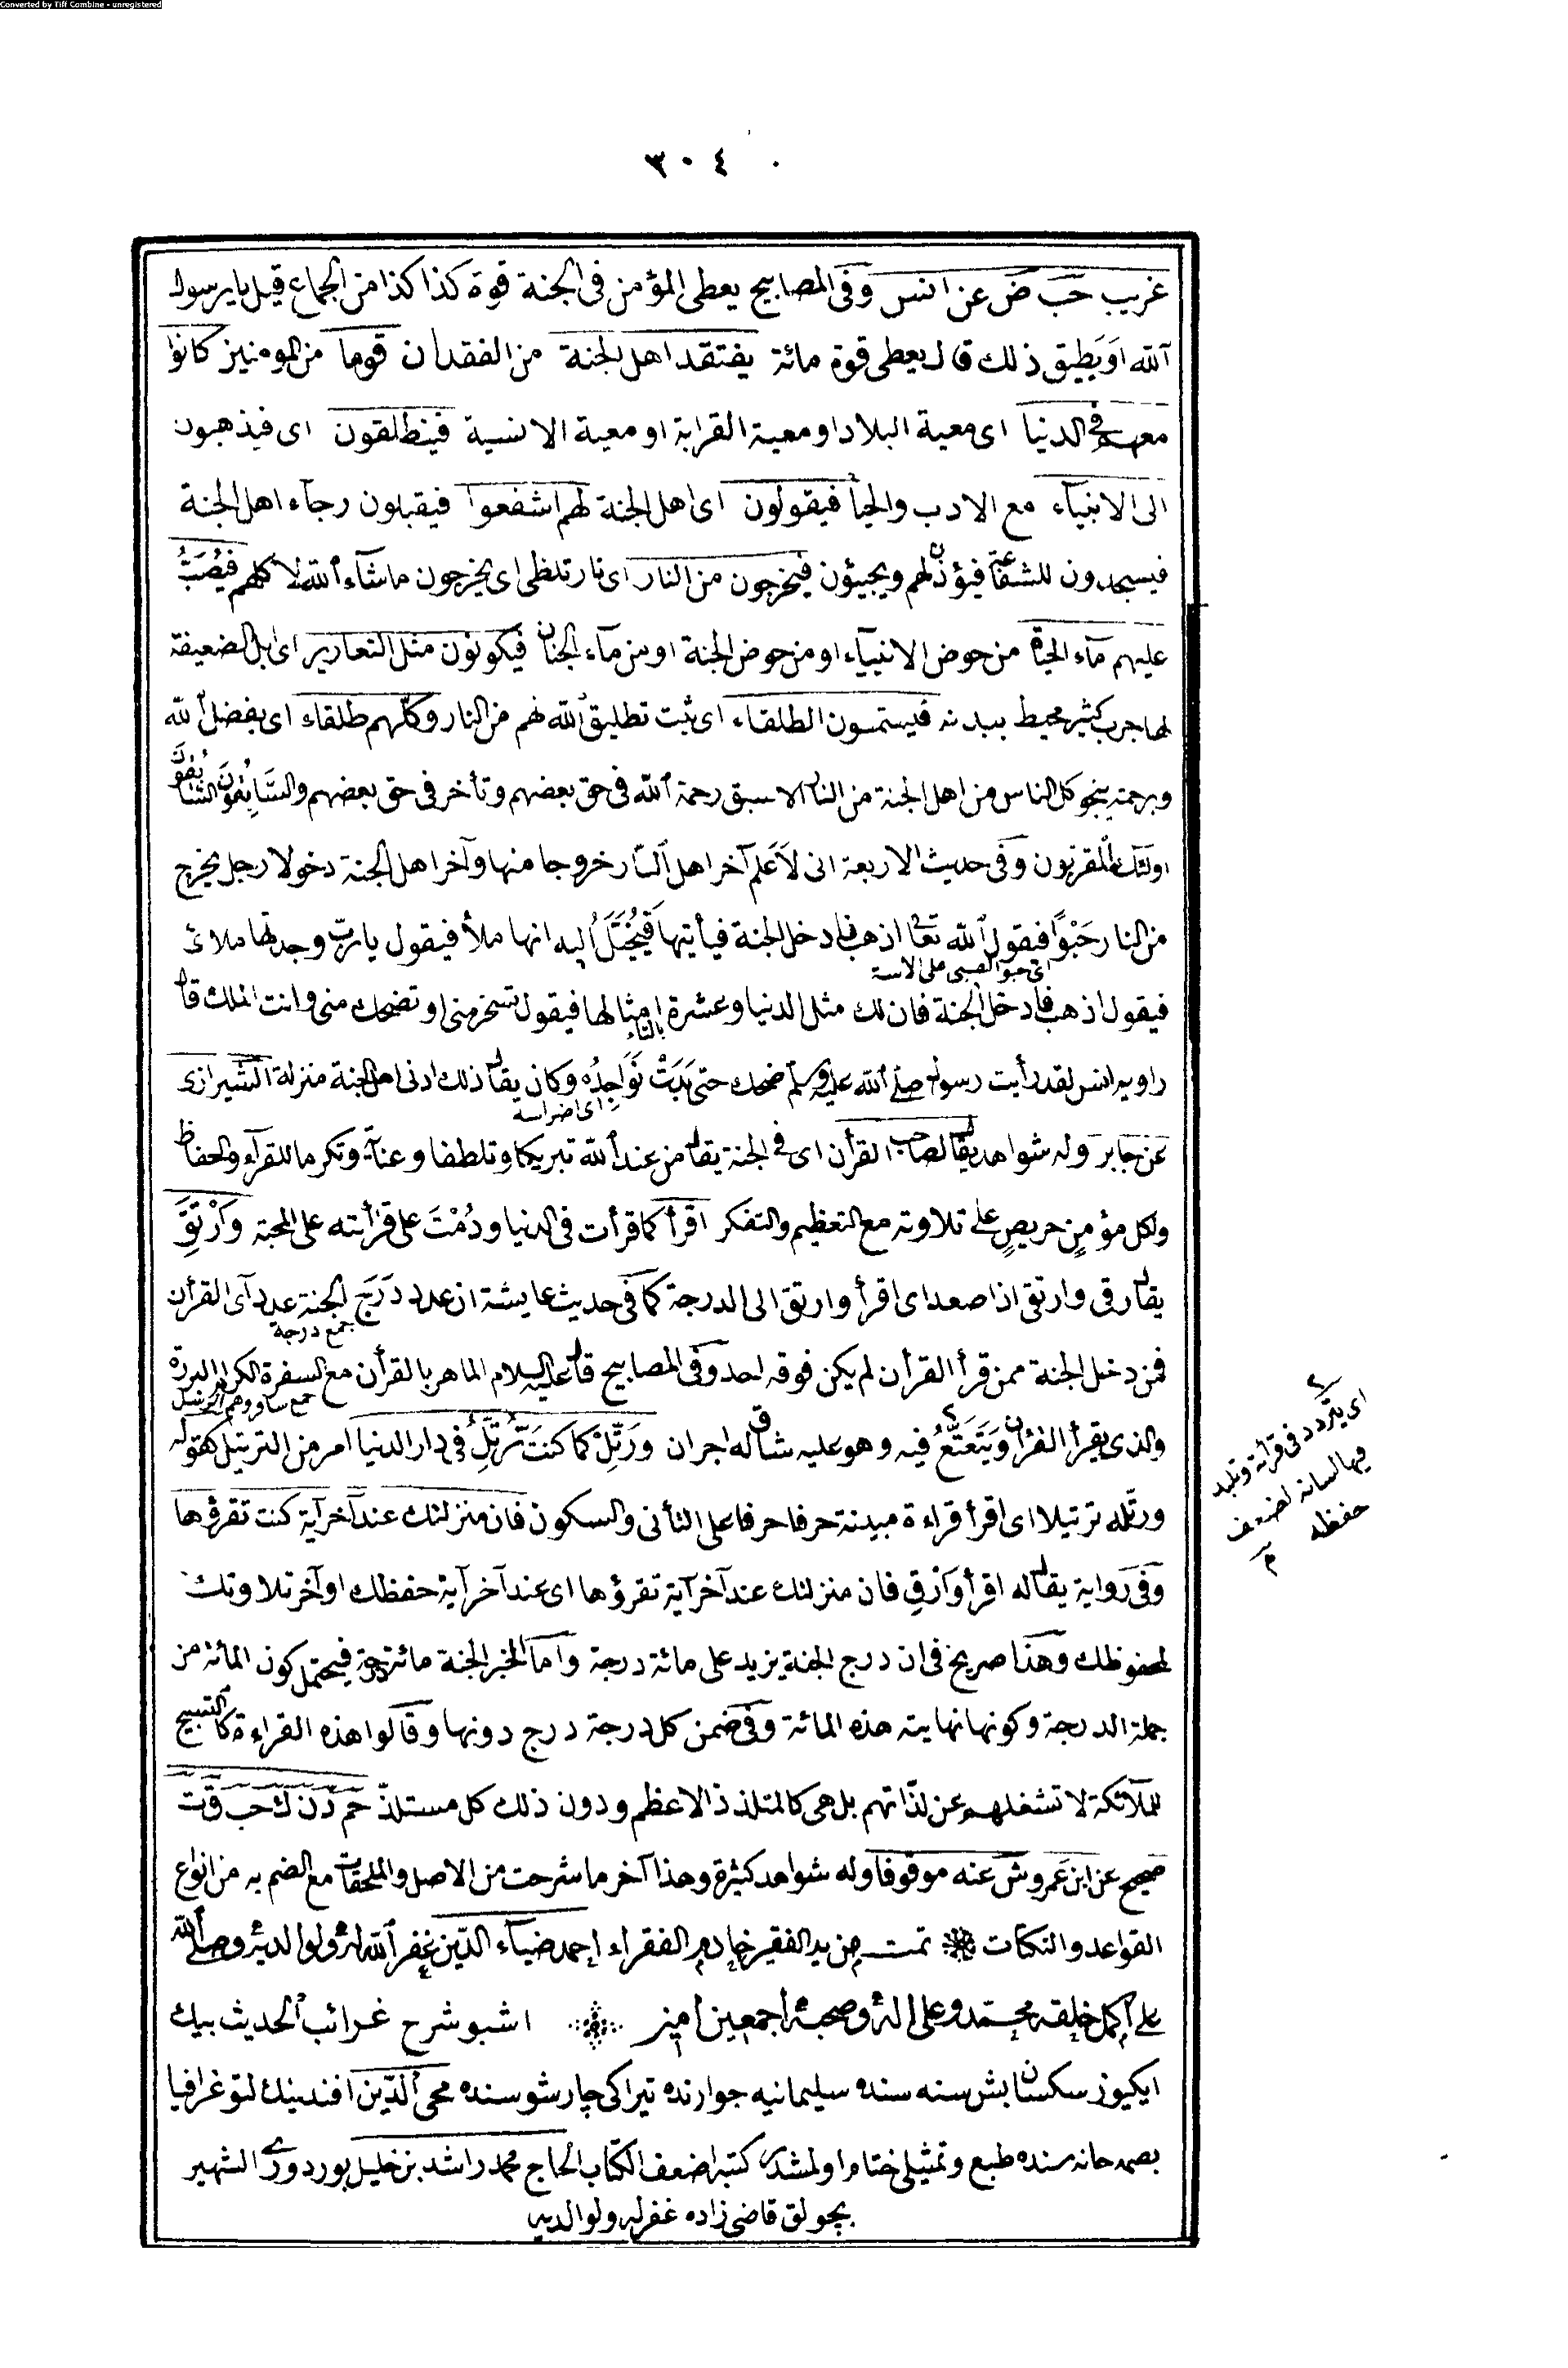 Converted by Tiff Combine - unregistered
٣٠٤
غريب حب ض عن انس وفى المصابيح يعطى المؤمن فى الجنة قوة كذا كذا من الجماع قيل يا رسول
الله اَوَيُطيق ذلك قال يعطى قوة مائة يفتقد اهل الجنة من الفقدان قوما من المومنين كانوا
معهم فى الدنيا اى معية البلاد او معية القرابة او معية الانسية فينطلقون اى فيذهبون
الى الانبيآء مع الادب والحيأ فيقولون اى اهل الجنة لهم اشفعوا فيقبلون رجآء اهل الجنة
فيسجدون للشفاعة فيؤذن لهم ويجيؤن فيخرجون من النار اى نار تلظى اى يخرجون ما شآء الله لا كلهم فيُصَبُّ
عليهم مآء الحيوة من حوض الانبيآء او من حوض الجنة او من مآء الجنان فيكونون مثل الثعارير اى ابل الضعيفة
لها جرب كثير محيط ببدنه فيستمون الطلقاء اى ثبت تطليق الله لهم من النار وكلهم طلقاء اى بفضل الله
وبرحمته ينجو كل الناس من اهل الجنة من النار الا سبق رحمة الله فى حق بعضهم وتأخر فى حق بعضهم والسَّابِقُونَ السَّابِقُونَ
اولئك المقربون وفى حديث الاربعة انى لاَعلم آخر اهل النار خروجا منها وآخر اهل الجنة دخولا رجل يخرج
من النار حَبْوًا فيقول الله تعالى اذهب فادخل الجنة فيأتيها فَيُخَيَّلُ اليه انها ملأ فيقول يا رب وجدتها ملائ
اى حبو الصبى على الاسته
فيقول اذهب فادخل الجنة فان لك مثل الدنيا وعشرة امثالها فيقول تسخر منى او تضحك منى وانت الملك قال
بالتاء
راويه انس لقد رأيت رسول صلى الله عليه وسلم ضحك حتى بَدَتْ نَوَاجِذُه وكان يقال ذلك ادنى اهل الجنة منزلة الشيرازى
اى اضراسه
عن جابر وله شواهد يقال لصاحب القرأن اى فى الجنة يقال من عند الله تبريكا وتلطفا وعناية وتكرما للقرآء والحفاظ
ولكل مؤمنٍ حريصٍ على تلاوته مع التعظيم والتفكر اقرأ كما قرأت فى الدنيا ودُمْتَ على قرأته على المحبة وَارْتَقِ
يقال رقى وارتقى اذا صعد اى اقرأ وارتق الى الدرجة كما فى حديث عايشة ان عدد دَرَجِ الجنة عدد آى القرأن
جمع درجة
فمن دخل الجنة ممن قرأ القرأن لم يكن فوقه احد وفى المصابيح قال عليه السلام الماهر بالقرأن مع السفرة الكرام البررة
جمع سافر وهم الرسل
والذى يقرأ القرأن ويَتَعْتَعُ فيه وهو عليه شاق له اجران ورَتِّلْ كما كنتَ تُرَتِّلُ فى دار الدنيا امر من الترتيل كقوله
اى يتردد فى قرأته وتلبد
فيها لسانه لضعف
حفظه م
ورتّله ترتيلا اى اقرأ قراءة مبينة حرفا حرفا على التأنى والسكون فان منزلتك عند آخر آية كنت تقرؤها
وفى رواية يقال له اقرأ وارْقِ فان منزلتك عند آخر آية تقرؤها اى عند آخر آية حفظك او آخر تلاوتك
لمحفوظك وهذا صريح فى ان درج الجنة يزيد على مائة درجة واما الخبر الجنة مائة درجة فيحتمل كون المائة من
جملة الدرجة وكونها نهاية هذه المائة وفى ضمن كل درجة درج دونها وقالوا هذه القراءة كالتسبيح
للملآئكة لا تشغلهم عن لذّاتهم بل هى كالمتلذذ الاعظم ودون ذلك كل مستلذّ حم د ن ك حب ق ت
صحيح عن ابن عمرو ش عنه موقوفا وله شواهد كثيرة وهذا آخر ما شرحت من الاصل والملحقات مع الضم به من انواع
القواعد والنكات تمت من يد الفقير خادم الفقراء احمد ضياء الدّين غفر الله له ولوالديه وصلى الله
على اكمل خلقه محمد وعلى اله وصحبه اجمعين امين اشبو شرح غرائب الحديث بيك
ايكيوز سكسان بش سنه سنده سليمانيه جوارنده تيراكى چارشوسنده محى الدّين افندينك لتوغرافيا
بصمه خانه سنده طبع وتمثيلى ختام اولمشدر كتبه اضعف الكتاب الحاج محمد راشد بن خليل بوردورى الشهير
بچولق قاضى زاده غفر له ولوالديه